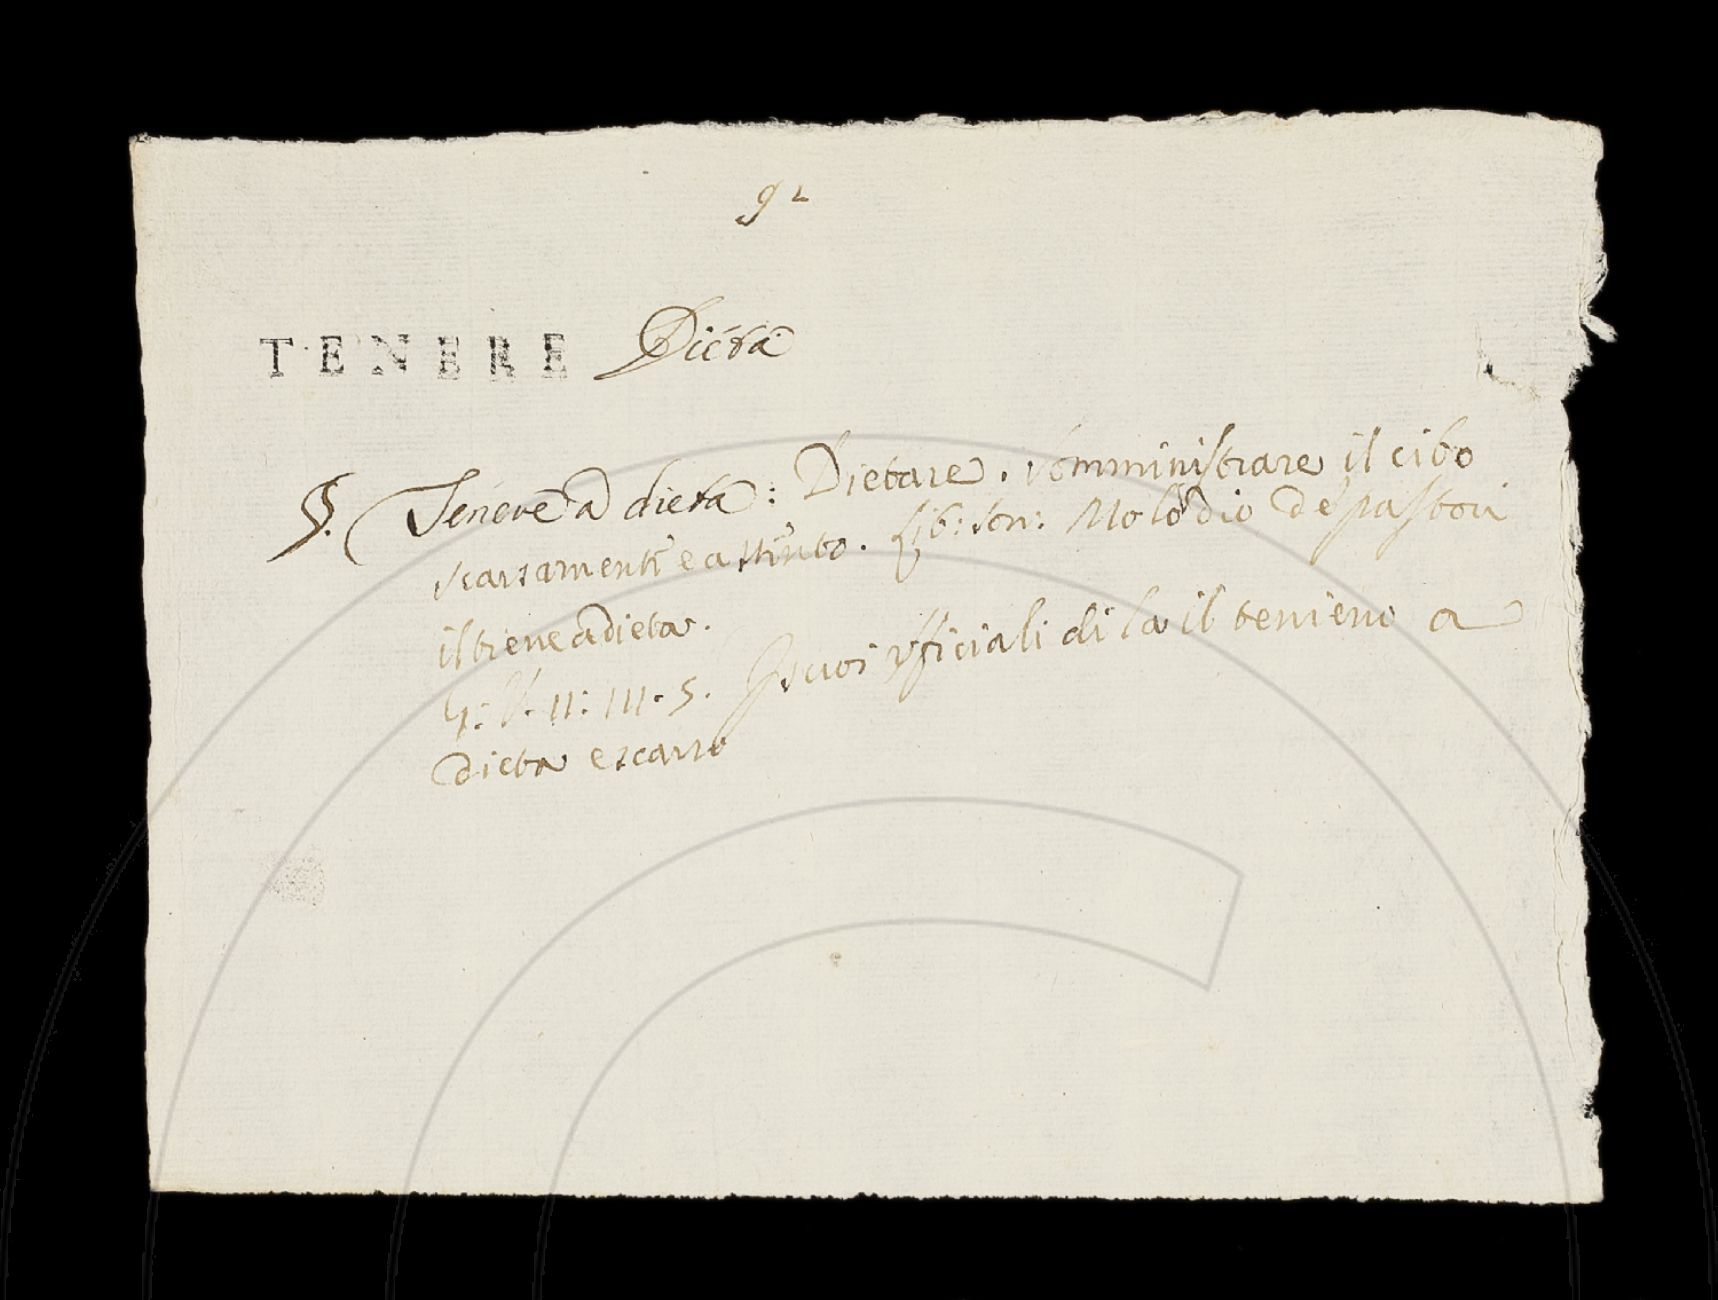 92
TENERE Dieta
§. Tenere a dieta: Dietare. Somministrare il cibo
scarsamente e a stento. Lib: Son: Molo dio de pastori
il tiene a dieta.
G: V. 11: 111. 5. I suoi ufficiali di la il tenieno a
dieta e scarso